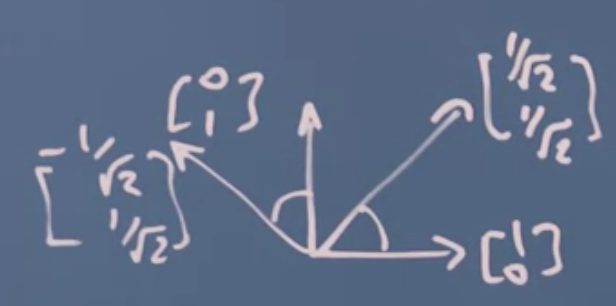 [0
1]
[1/√2
1/√2]
[-1/√2
1/√2]
[1
0]